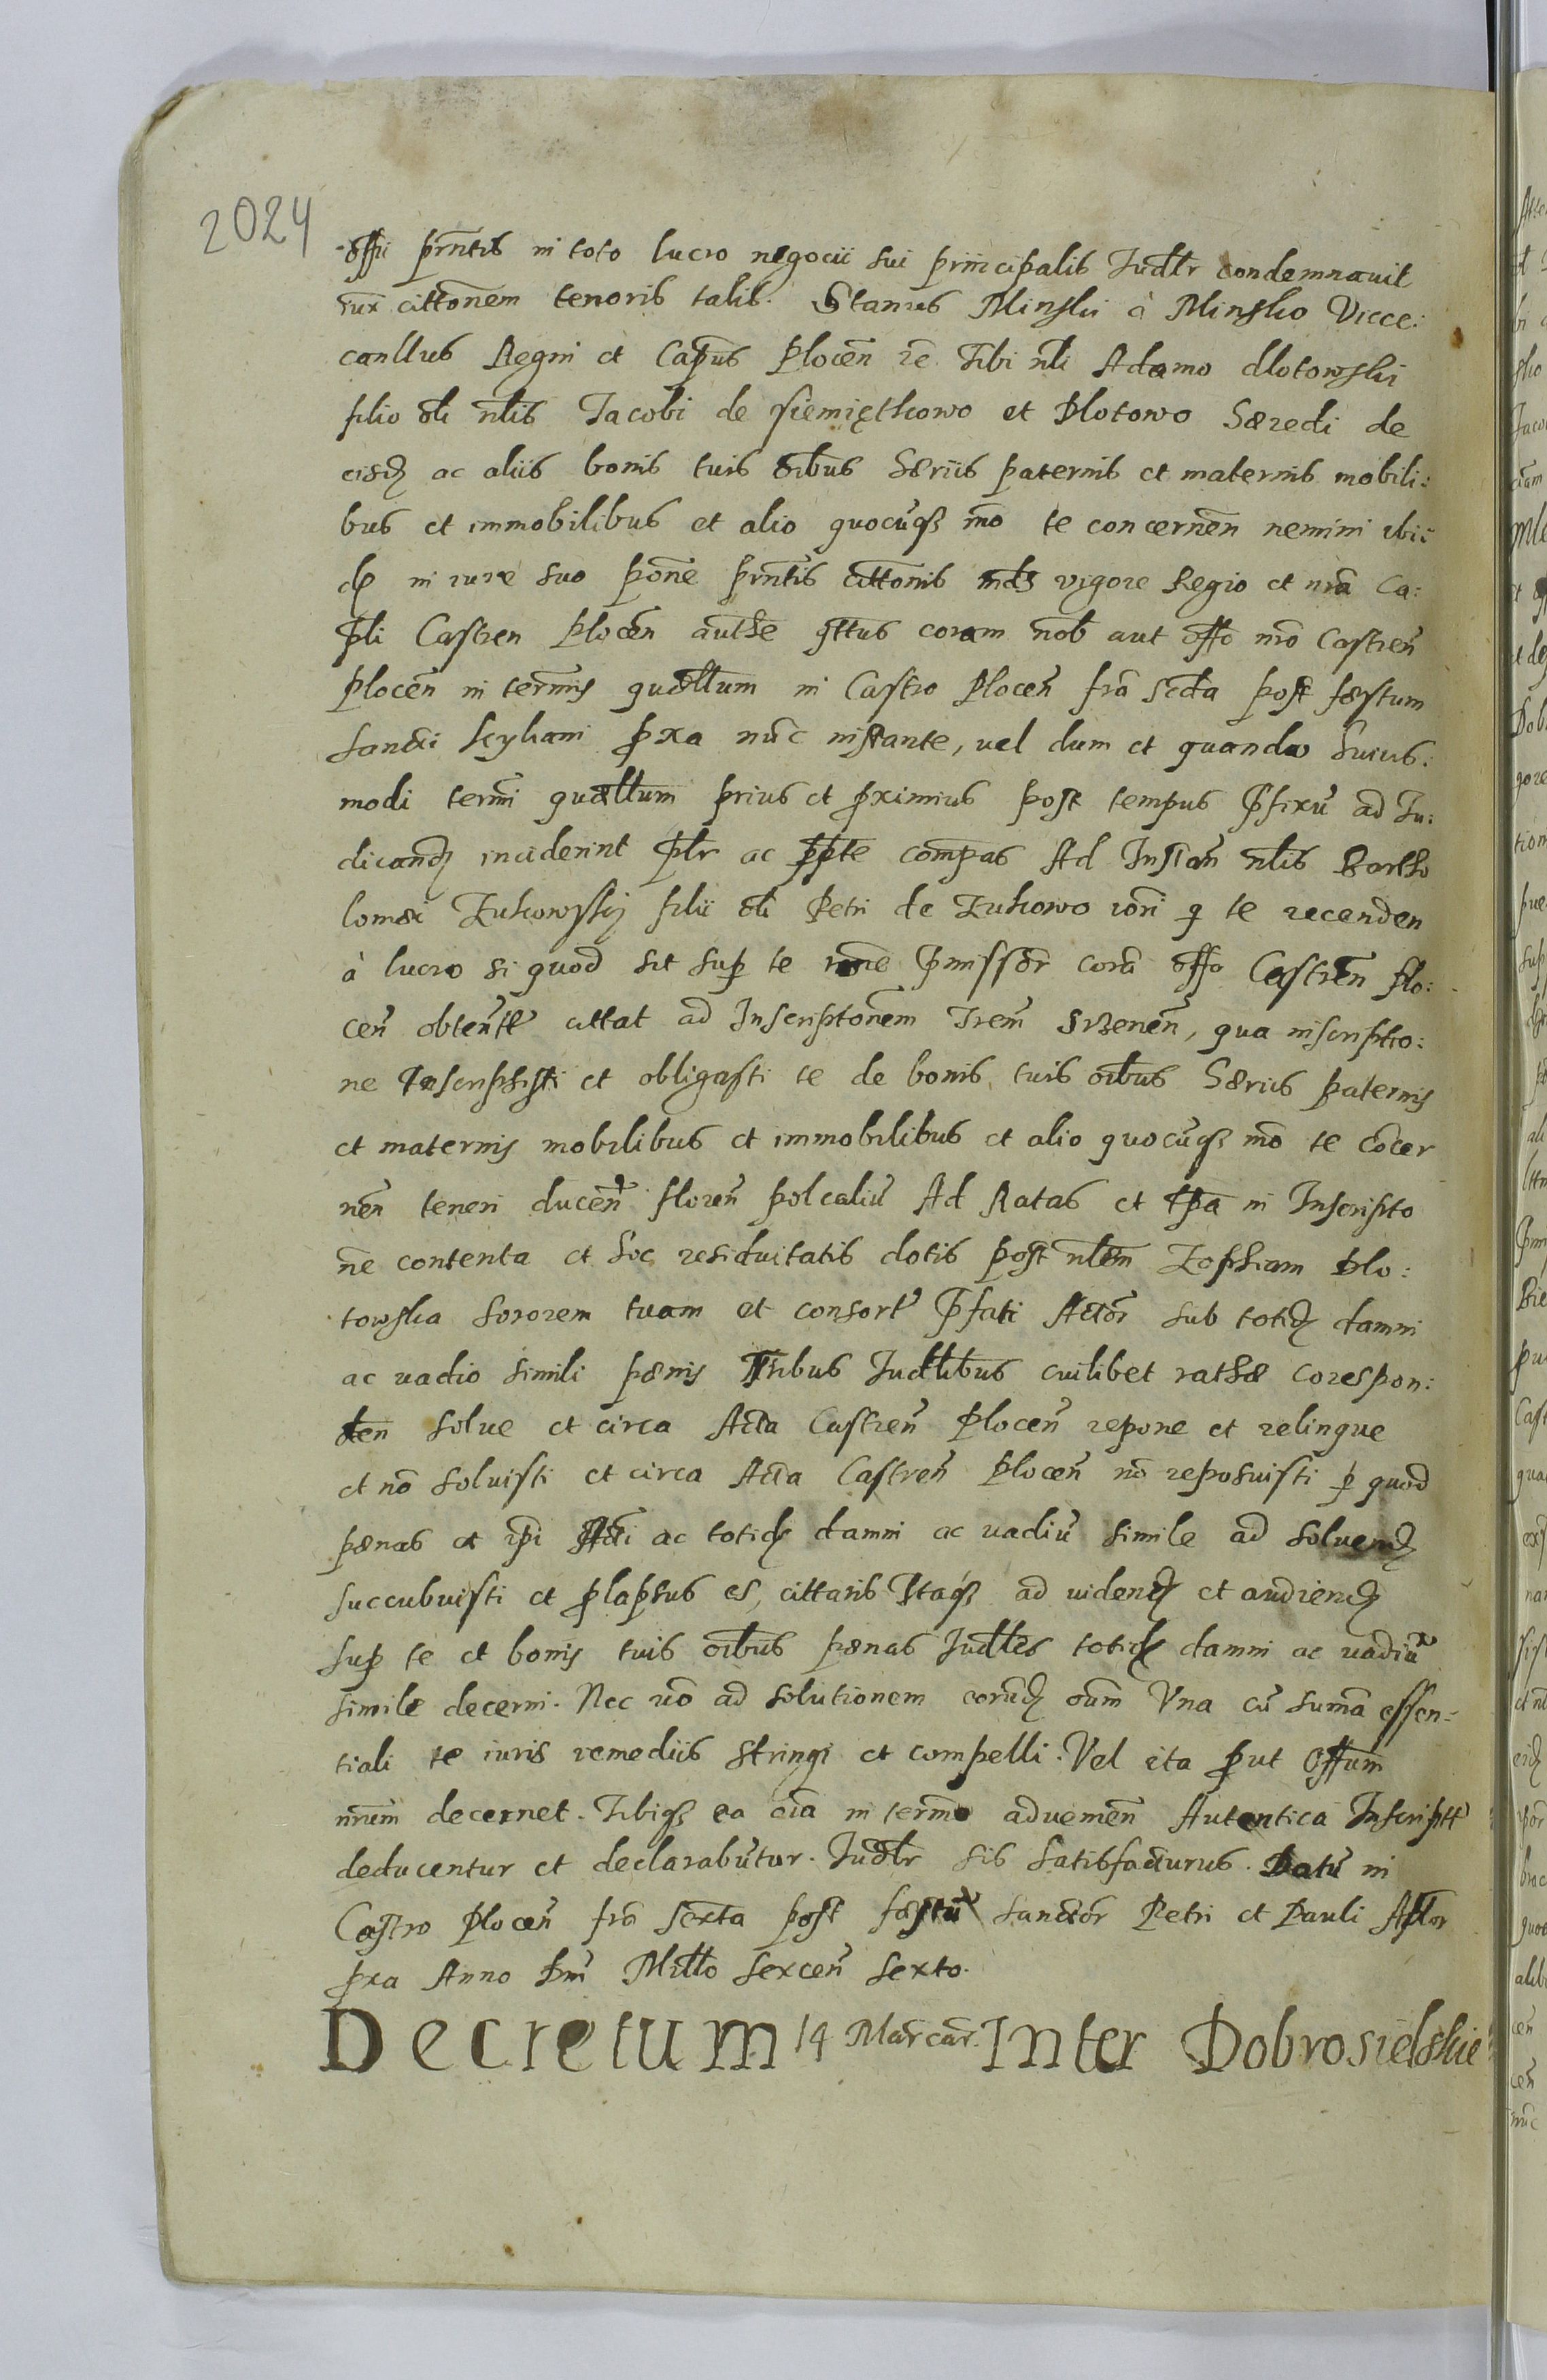 2024
offii prntis in toto lucro negocii sui principalis Judlr condemnavit
iux cittonem tenoris talis. Stanus Minski à Minsko Vice:
canllus Regni et Capnus Plocen re Tibi nli Adamo Dlotowski
filio oli nlis Jacobi de Siemiętkowo et Plotowo Hæredi de
eisdq ac aliis bonis tuis oibus Hæriis paternis et maternis mobili:
bus et immobilibus et alio quocūqs mō te concernen nemini ibi:
dq in iure suo pone prntis cittonis mds vigore Regio et nrā Ca:
pli Castren Plocen authe qttus coram nob aut offo nrō Castren
Plocen in termis quællum in Castro Plocen frā scda post fæstum
sancti Kyliani pxa nūc instante, vel dum et quando huius:
modi termi quællum prius et pximius post tempus pfixū ad Ju:
dicandq inciderint plr ac ppte compas Ad Instan nlis Bartho
lomæi Zukowskij filii oli Petri de Zukowo iori q te recenden
à lucro si quod sit sup te rone pmissor corā offo Castren Plo:
cen obtent cittat ad Inscriptonem Trem Srzenen, qua inscriptio:
ne Inscripsisti et obligasti te de bonis tuis oibus Hæriis paternis
et maternis mobilibus et immobilibus et alio quocūqs mō te cōcer
nen teneri ducen floren polcaliū Ad Ratas et tpa in Inscripto
ne contenta et hoc residuitatis dotis post nlem Zophiam Plo:
towska sororem tuam et consort pfati Actor sub totidq damni
ac vadio simili pænis Tribus Judlibus cuilibet rathæ corespon:
den solve et circa Acta Castren Plocen repone et relinque
et nō solvisti et circa Acta Castren Plocen nō reposuisti p quod
pænas et ipi ac totidq damni ac vadiū simile ad solvendq
succubuisti et plapsus es, cittaris Itaqs ad videndq et audiendq
sup te et bonis tuis oibus pænas Judles totidq damni ac vadiū
simile decerni. Nec nō ad solutionem eorūdq oium Vna cū sumā essen=
tiali te iuris remediis stringi et compelli. Vel ita put Offum
nrum decernet. Tibiqs ea oia in termo advenien Autentica Inscriptt
deducentur et declarabūtur. Judlr sis satisfacturus. Datū in
Castro Plocen frā sexta post fæstū sanctor Petri et Pauli Aplor
pxa Anno Dni Millo sexcen sexto.
Decretum 14 Marcar. Inter Dobrosielskie